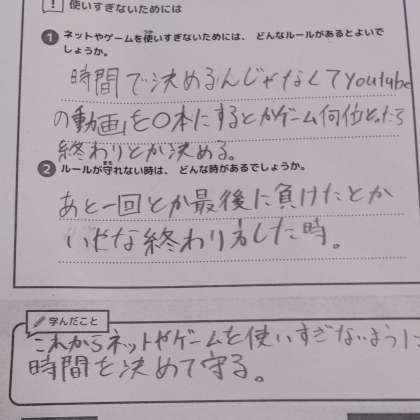 ! 使いすぎないためには
1 ネットやゲームを使いすぎないためには、どんなルールがあるとよいで
しょうか。
時間で決めるんじゃなくてyoutube
の動画を〇本にするとかゲーム何位とったら
終わりとか決める。
2 ルールが守れない時は、どんな時があるでしょうか。
あと一回とか最後に負けたとか
いやな終わり方した時。
学んだこと
これからネットやゲームを使いすぎないように
時間を決めて守る。